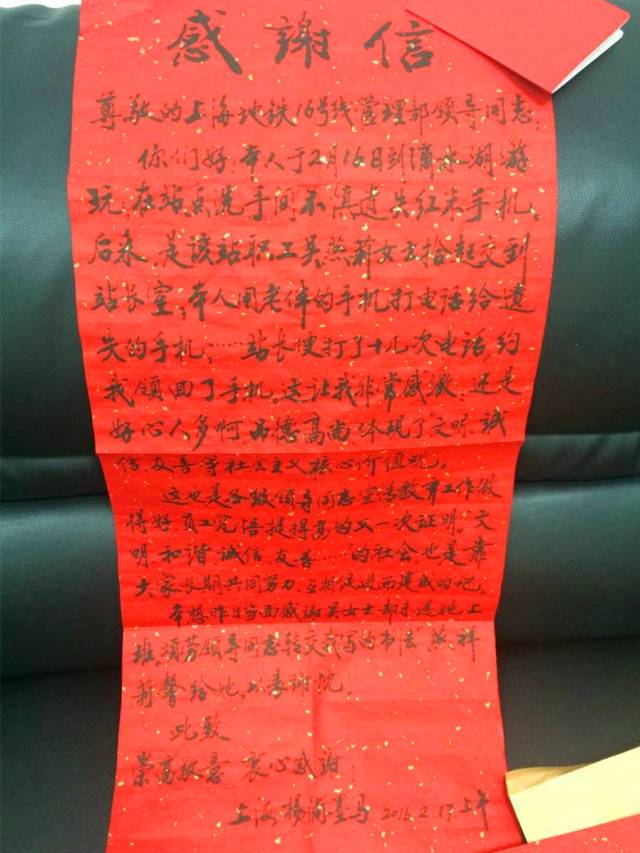 感謝信
尊敬的上海地铁16号线管理部领导同志:
你们好,本人于2月16日到滴水湖游
玩,在站点洗手间不慎遗失红米手机。
后来,是该站职工吴燕莉女士拾起交到
站长室,本人用老伴的手机打电话给遗
失的手机,……站长便打了十几次电话,约
我领回了手机。这让我非常感激,还是
好心人多啊,品德高尚体现了文明,誠
信,友善等社会主义核心价值观。
这也是各级领导同志宣传教育工作做
得好,员工觉悟提得高的又一次证明。文
明,和谐,诚信,友善……的社会,也是靠
大家长期共同努力,互相促进而建成的吧。
本想昨日当面感谢吴女士,却未遇她上
班,烦劳领导同志转交我写的书法
给她,以表谢忱。
此致
崇高敬意 衷心感謝
上海楊浦墨马 2016.2.17上午